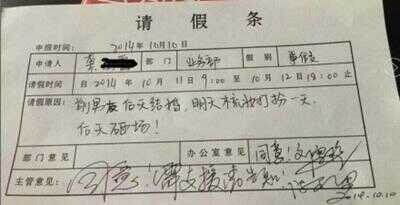 请假条
申报时间: 2014年10月10日
申请人 部门 业务部 假别 事假
请假时间 自2014年10月11日9:00至10月12日18:00止
请假原因: 前男友后天结婚,明天梳妆打扮一天,
后天砸场!
部门意见 办公室意见 同意!
主管意见 同意!需支援请告知!
10.10